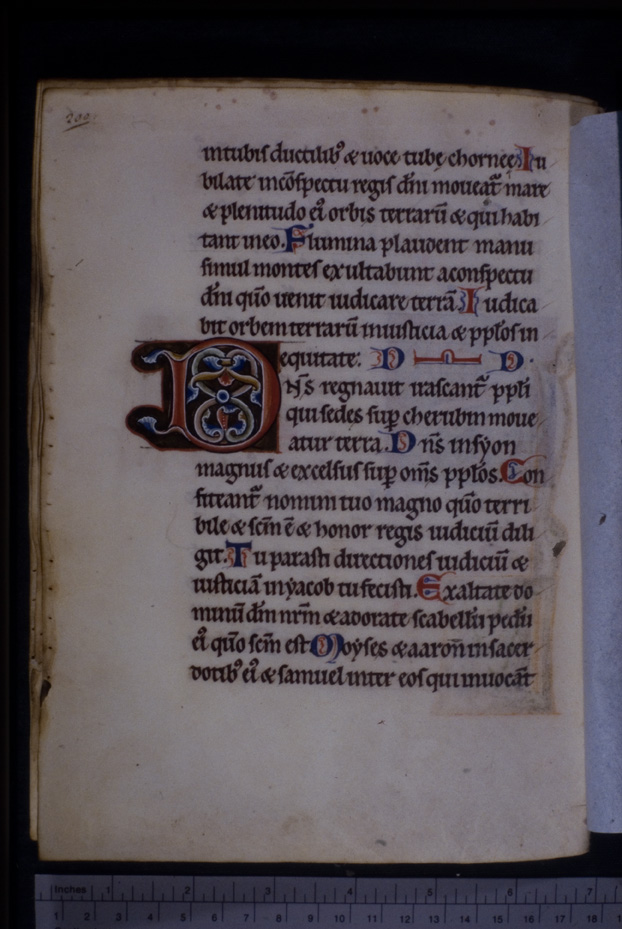 200
in tubis ductilibꝰ & uoce tubę cornee. Iu
bilate in cōspectu regis dn̄i moueat᷑ mare
& plenitudo eiꝰ orbis terrarū & qui habi
tant in eo. Flumina plaudent manu
simul montes exultabunt a conspectu
dn̄i qm̄ uenit iudicare terrā. Iudica
bit orbem terrarū in iusticia & pplōs in
equitate: D D.
DN̄S regnauit irascant᷑ ppli
qui sedes sup cherubin moue
atur terra. Dn̄s in syon
magnus & excelsus sup om̄s pplōs. Con
fiteant᷑ nomini tuo magno qm̄ terri
bile & scm̄ ē & honor regis iudiciū dili
git. Tu parasti directiones iudiciū &
iusticiā in yacob tu fecisti. Exaltate do
minū dm̄ nrm̄ & adorate scabellū pedū
eiꝰ qm̄ scm̄ est. Moyses & aaron in sacer
dotibꝰ eiꝰ & samuel inter eos qui inuocāt
Inches 1 2 3 4 5 6 7
1 2 3 4 5 6 7 8 9 10 11 12 13 14 15 16 17 18